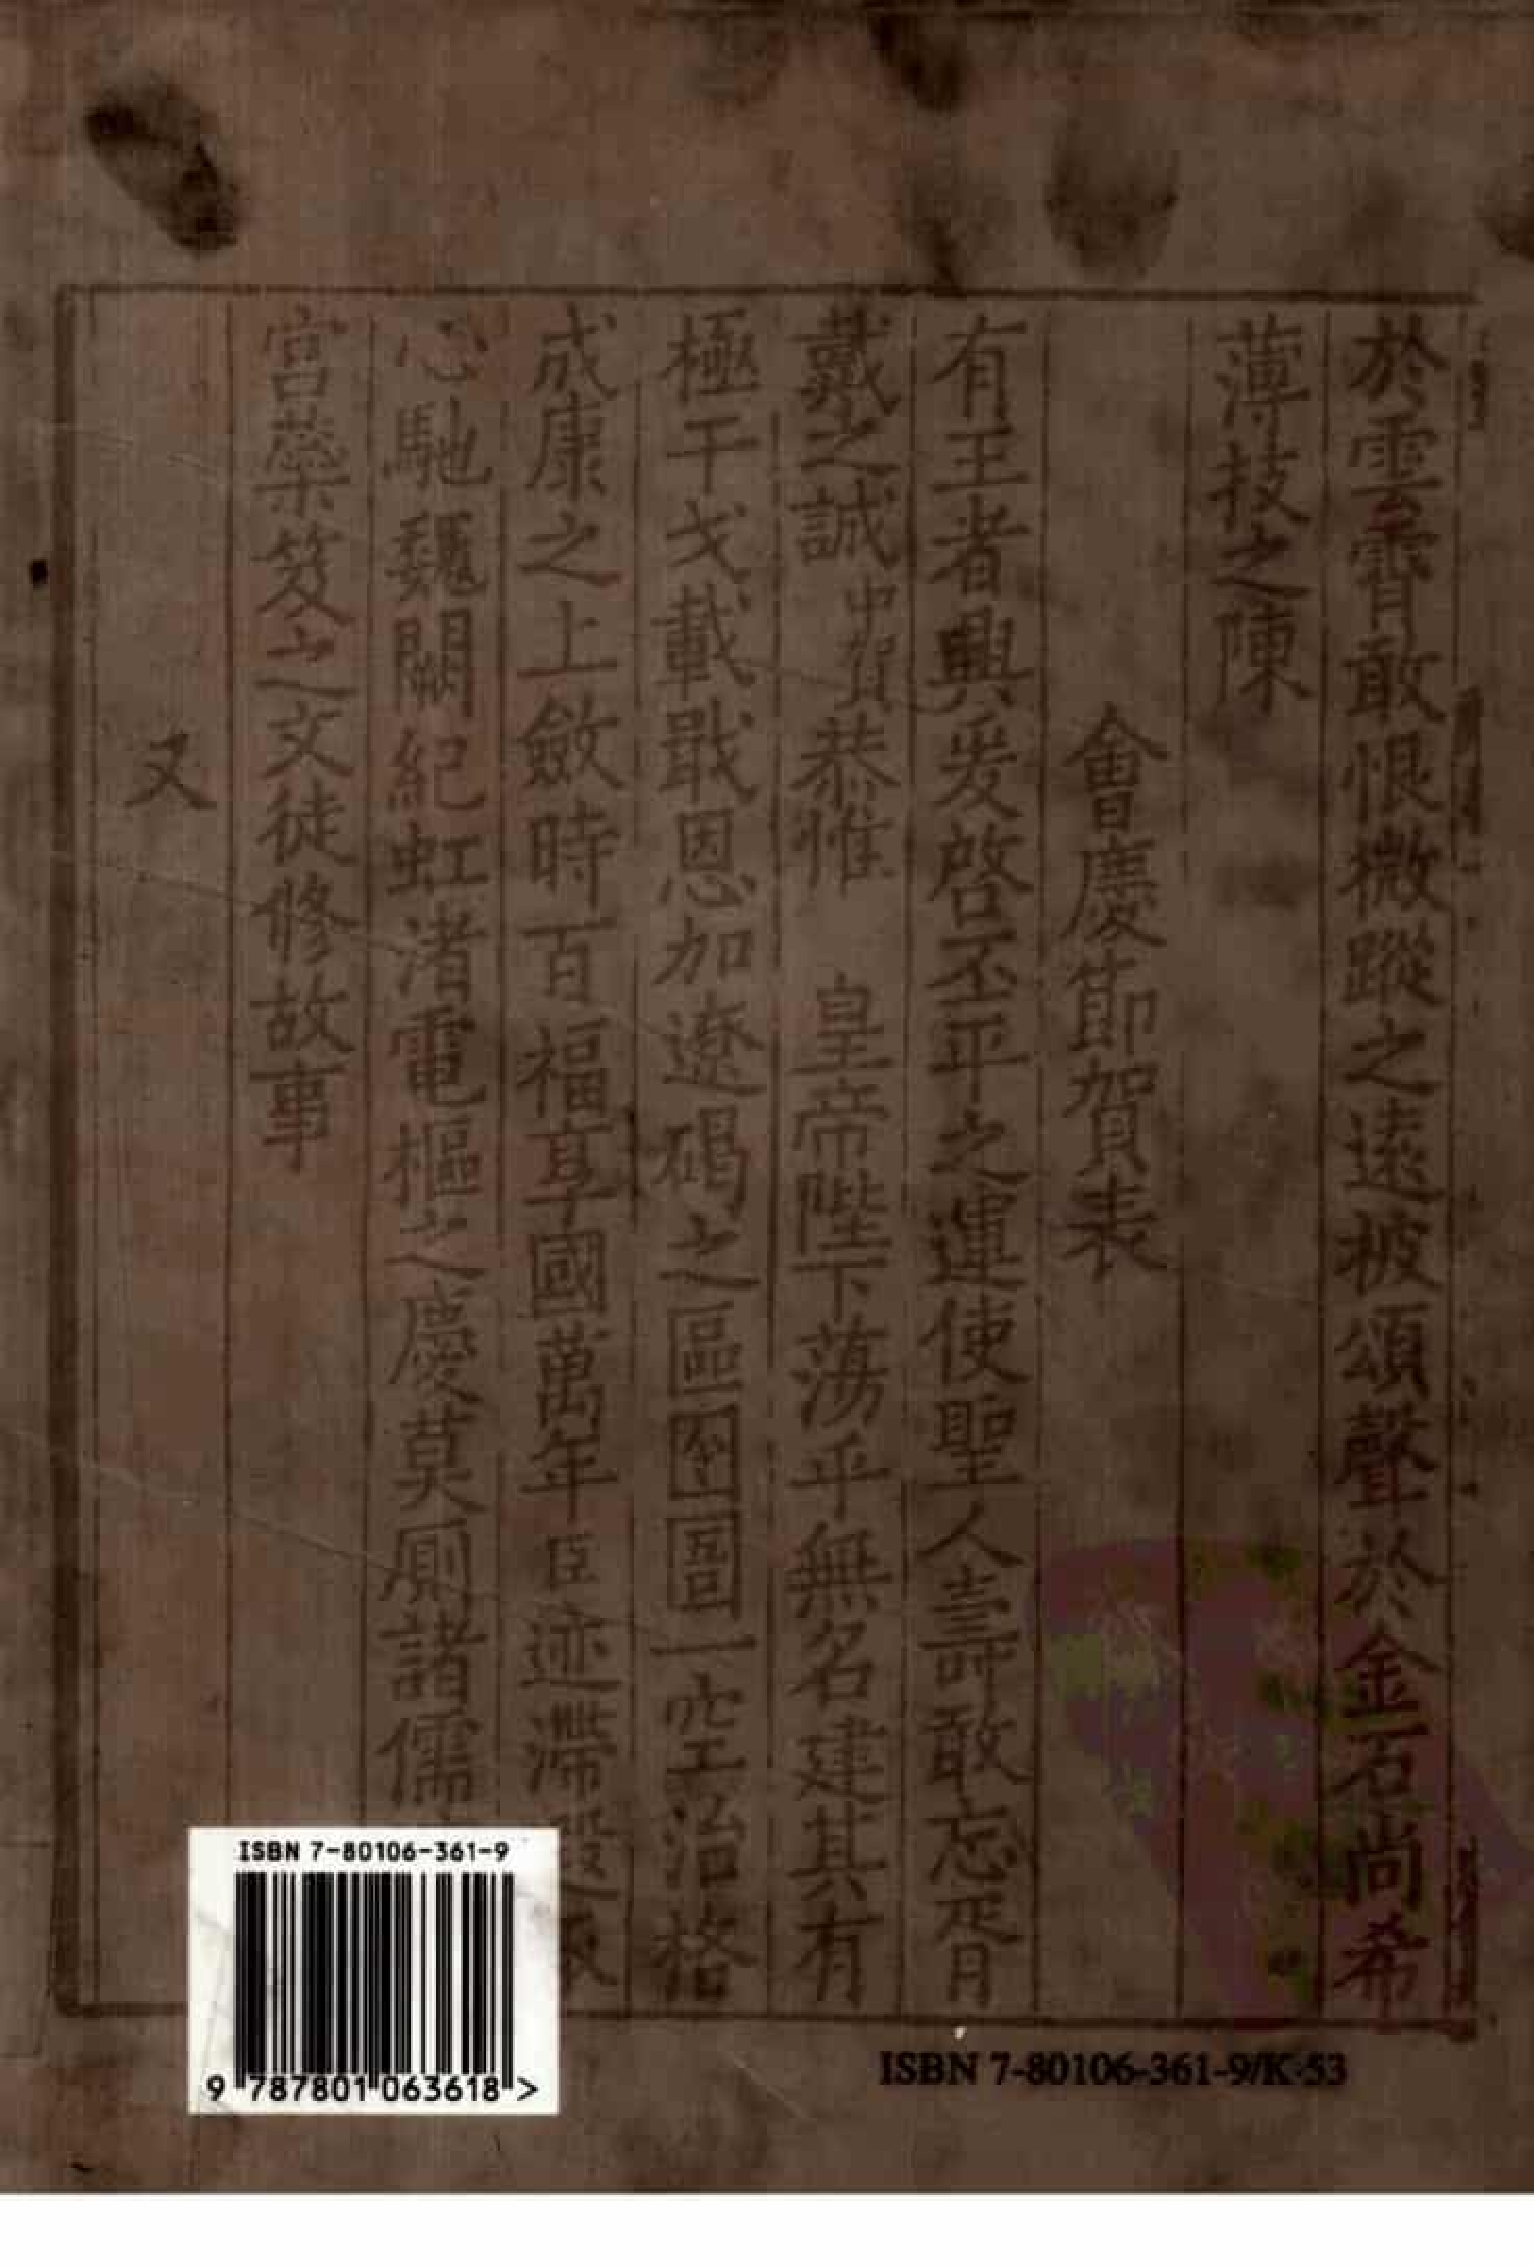 於雲霄敢恨微蹤之遠披頌聲於金石尚希
薄技之陳
會慶節賀表
有王者興爰啓丕平之運使聖人壽敢忘胥
戴之誠中賀恭惟 皇帝陛下蕩乎無名建其有
極干戈載戢恩加遼碣之區囹圄一空治格
成康之上斂時百福享國萬年臣迹滯殿
心馳魏闕紀虹渚電樞之慶莫厠諸儒
宮蘂笈之文徒修故事
又
ISBN 7-80106-361-9
9 787801 063618 >
ISBN 7-80106-361-9/K·53